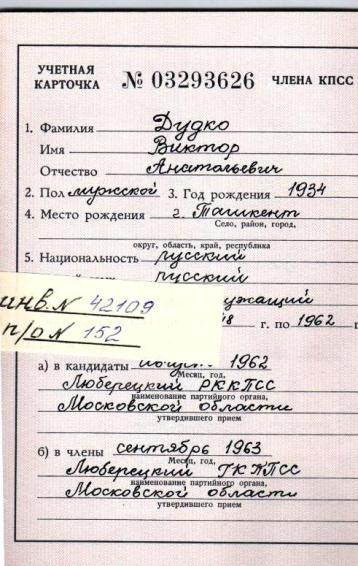 УЧЕТНАЯ
КАРТОЧКА № 03293626 ЧЛЕНА КПСС
1. Фамилия Дудко
Имя Виктор
Отчество Анатольевич
2. Пол мужской 3. Год рождения 1934
4. Место рождения г. Ташкент
Село, район, город,
округ, область, край, республика
5. Национальность русский
русский
инв. № 42109
п/о № 152
г. по 1962 г
а) в кандидаты 1962
Месяц, год,
Люберецкий РККПСС
наименование партийного органа,
Московской области
утвердившего прием
б) в члены сентябрь 1963
Месяц, год,
Люберецкий ГККПСС
наименование партийного органа,
Московской области
утвердившего прием